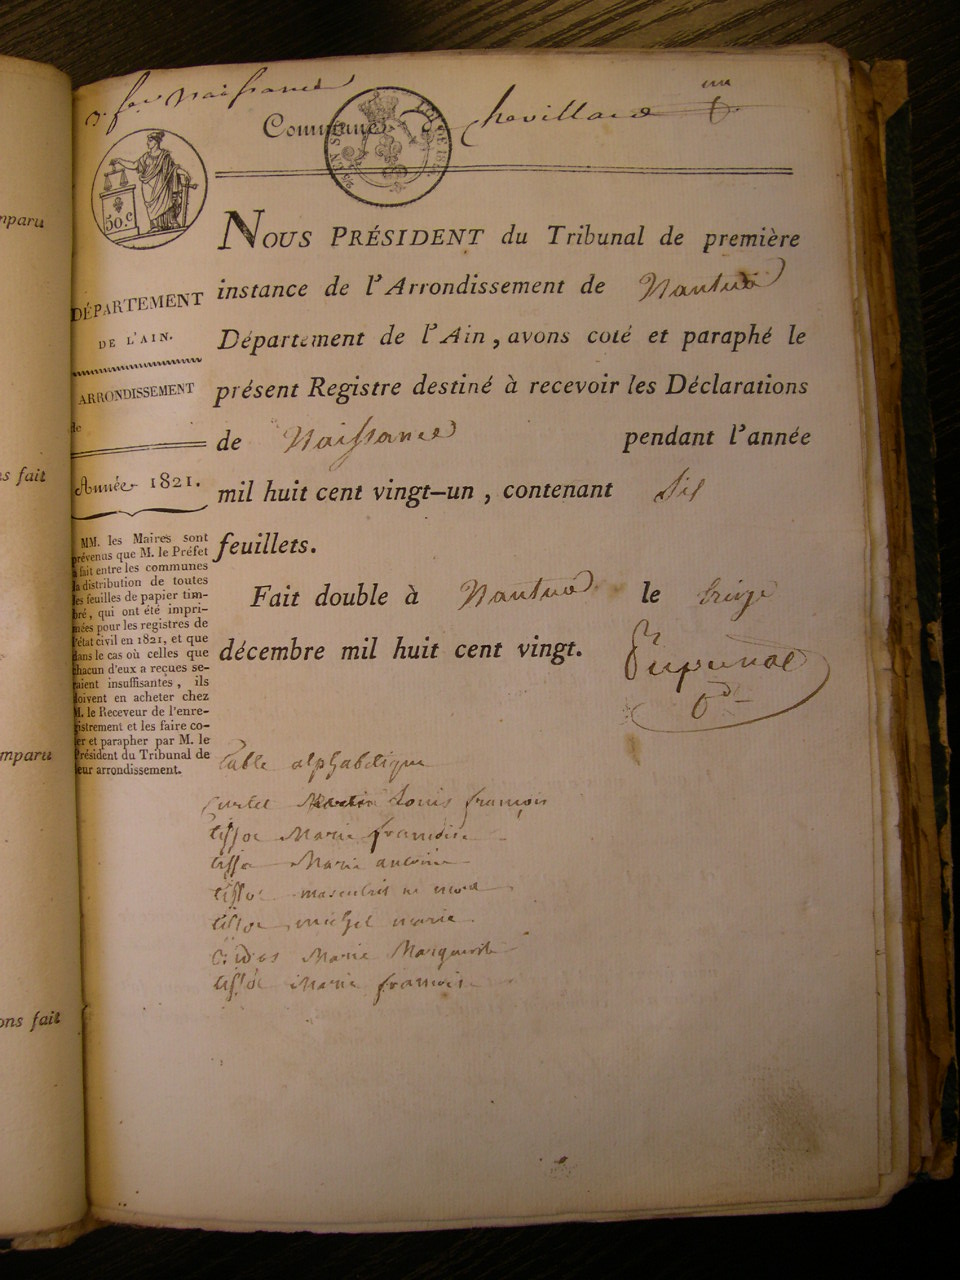 naissance
Commune de Chevillard
50.c
NOUS PRÉSIDENT du Tribunal de première
instance de l'Arrondissement de Nantua
Département de l'Ain, avons coté et paraphé le
présent Registre destiné à recevoir les Déclarations
de Naissance pendant l'année
mil huit cent vingt-un, contenant Six
feuillets.
Fait double à Nantua le treize
décembre mil huit cent vingt.
DÉPARTEMENT
DE L'AIN.
ARRONDISSEMENT
de
Année 1821.
MM. les Maires sont
prévenus que M. le Préfet
a fait entre les communes
la distribution de toutes
les feuilles de papier tim-
bré, qui ont été impri-
mées pour les registres de
l'état civil en 1821, et que
dans le cas où celles que
chacun d'eux a reçues se-
raient insuffisantes, ils
doivent en acheter chez
M. le Receveur de l'enre-
gistrement et les faire co-
ter et parapher par M. le
Président du Tribunal de
leur arrondissement.
table alphabetique
Curtet Martin Louis françois
tissot Marie francoise
tissot Marie antoine
tissot masculin né mort
tissot michel marie
Marie Marguerite
tissot Marie francoise
mparu
ns fait
omparu
ons fait